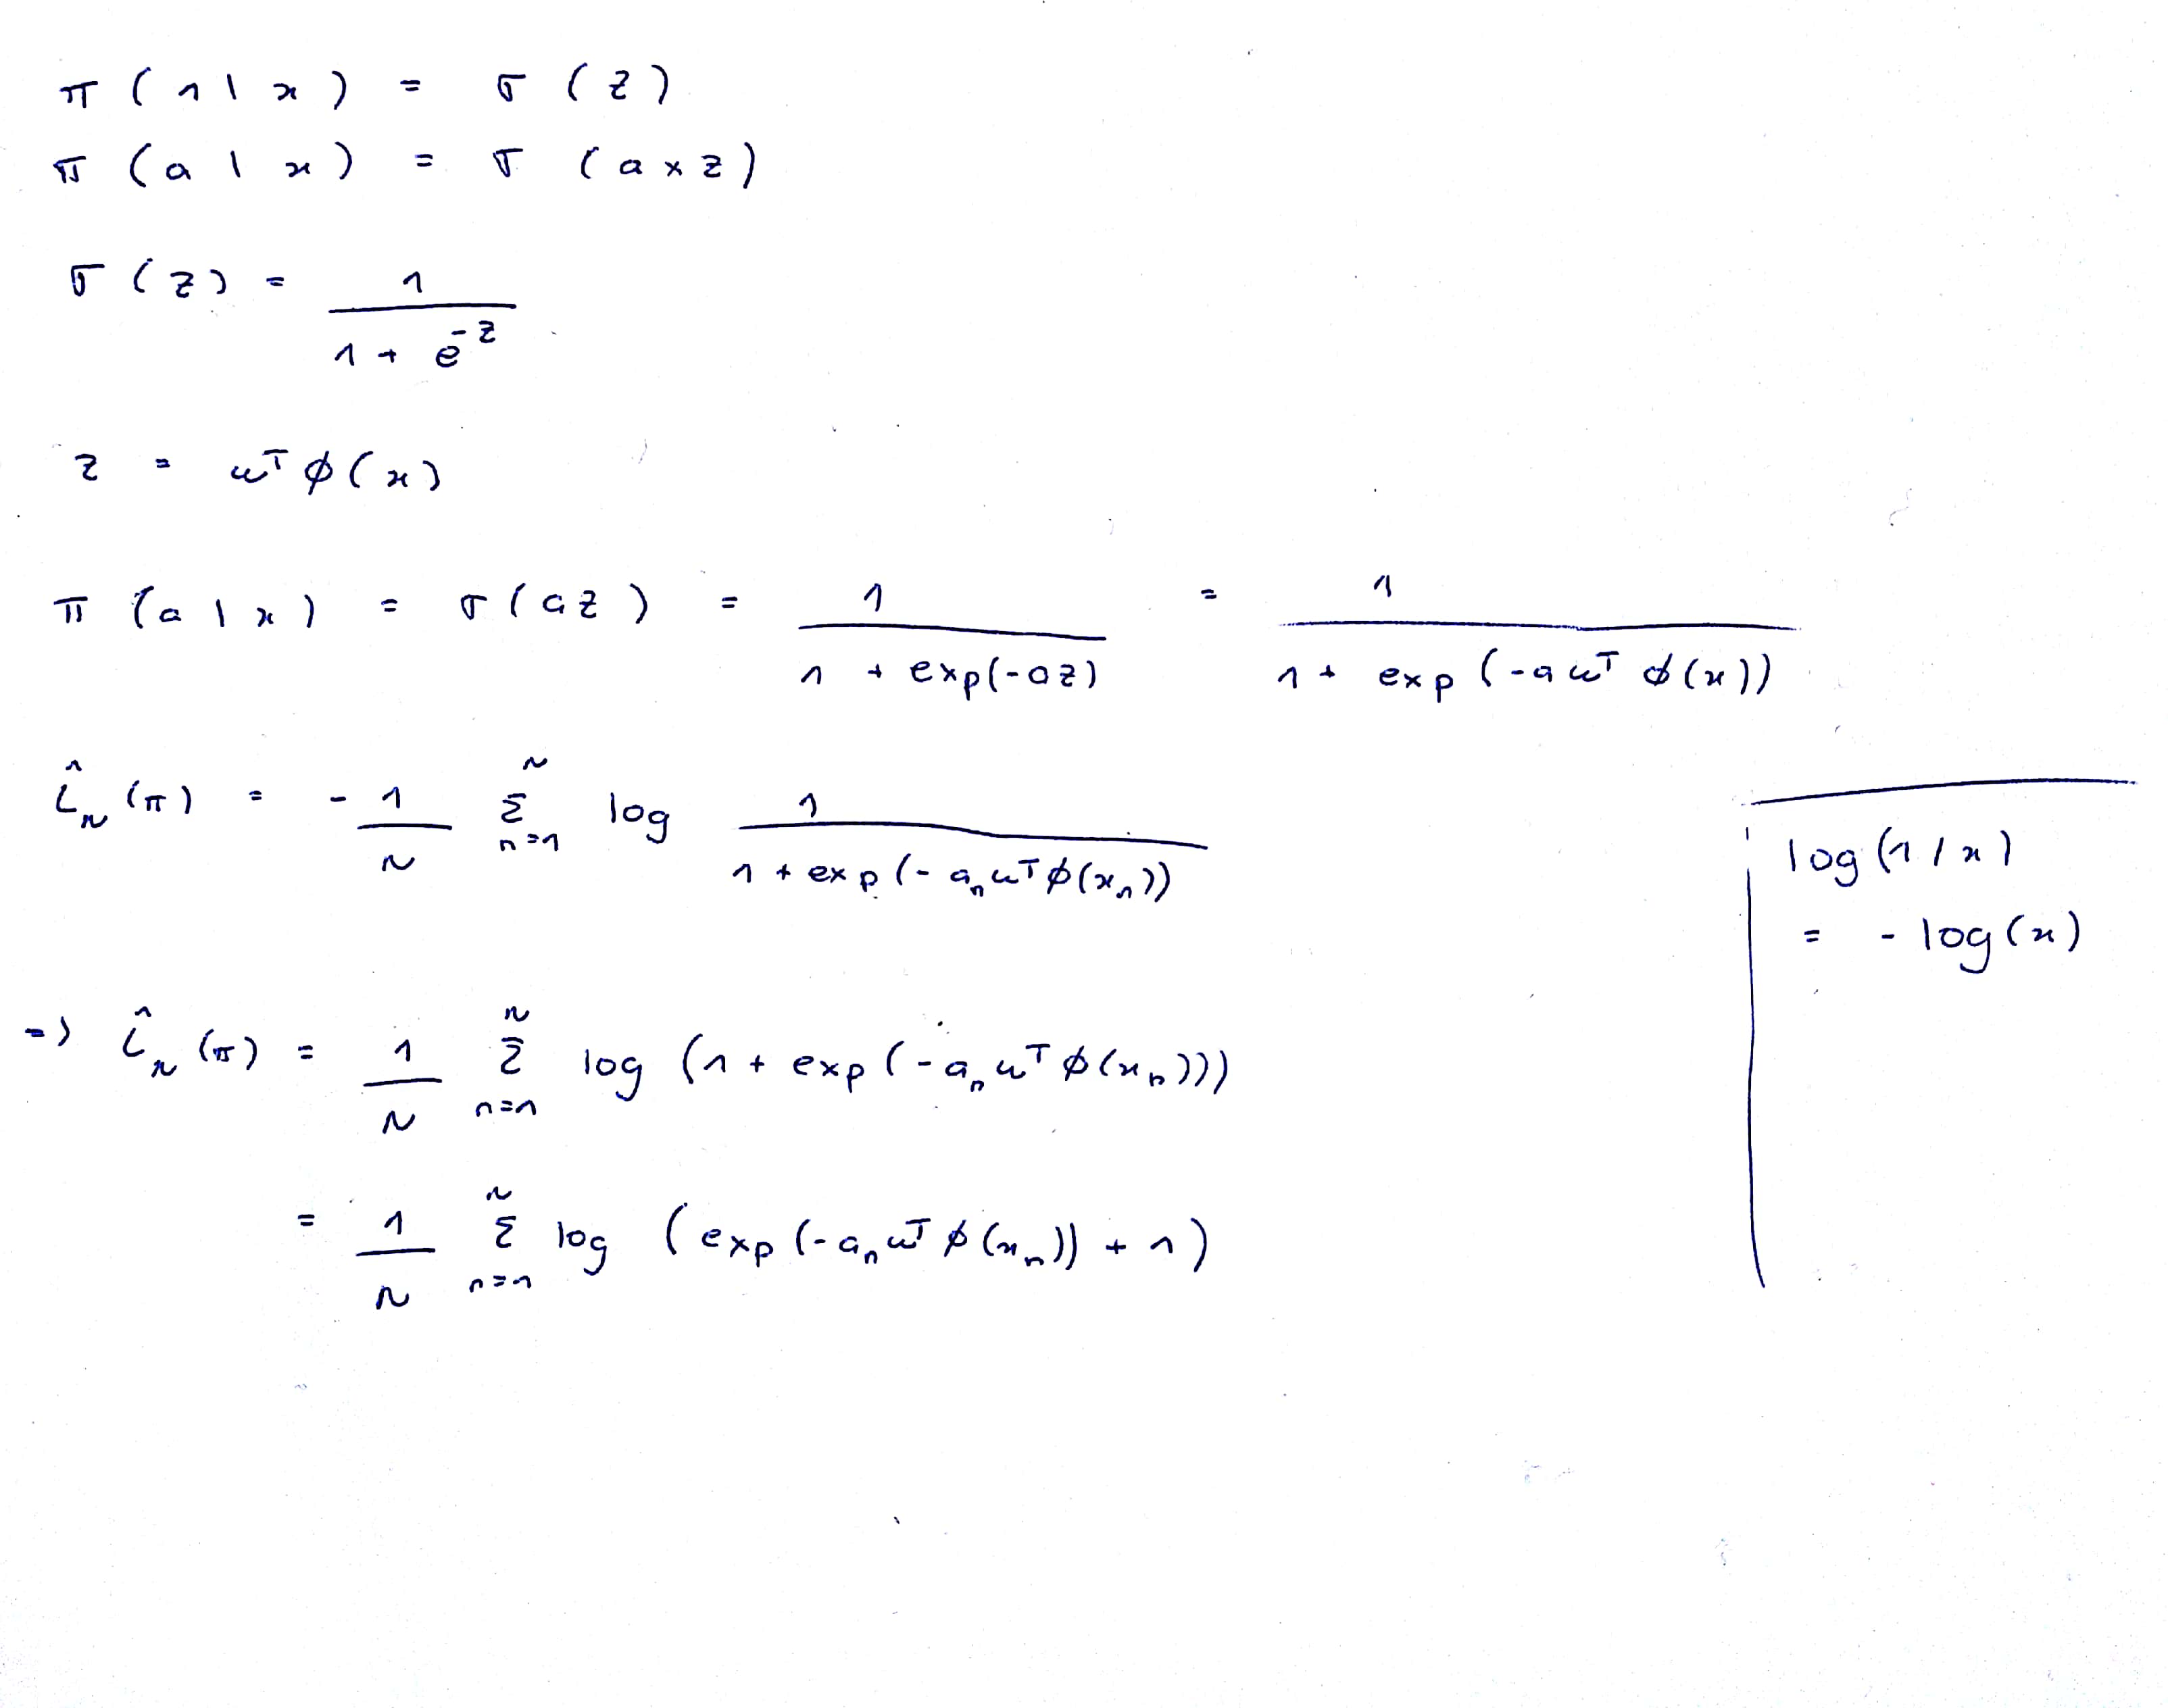 π(1|x) = σ(z)
π(a|x) = σ(a×z)
σ(z) = 1 / (1 + e^{-z})
z = w^T ϕ(x)
π(a|x) = σ(az) = 1 / (1 + exp(-az)) = 1 / (1 + exp(-a w^T ϕ(x)))
L̂_N(π) = - 1/N Σ_{n=1}^{N} log 1 / (1 + exp(-a_n w^T ϕ(x_n)))
log(1/x)
= - log(x)
=> L̂_N(π) = 1/N Σ_{n=1}^{N} log (1 + exp(-a_n w^T ϕ(x_n)))
= 1/N Σ_{n=1}^{N} log (exp(-a_n w^T ϕ(x_n)) + 1)